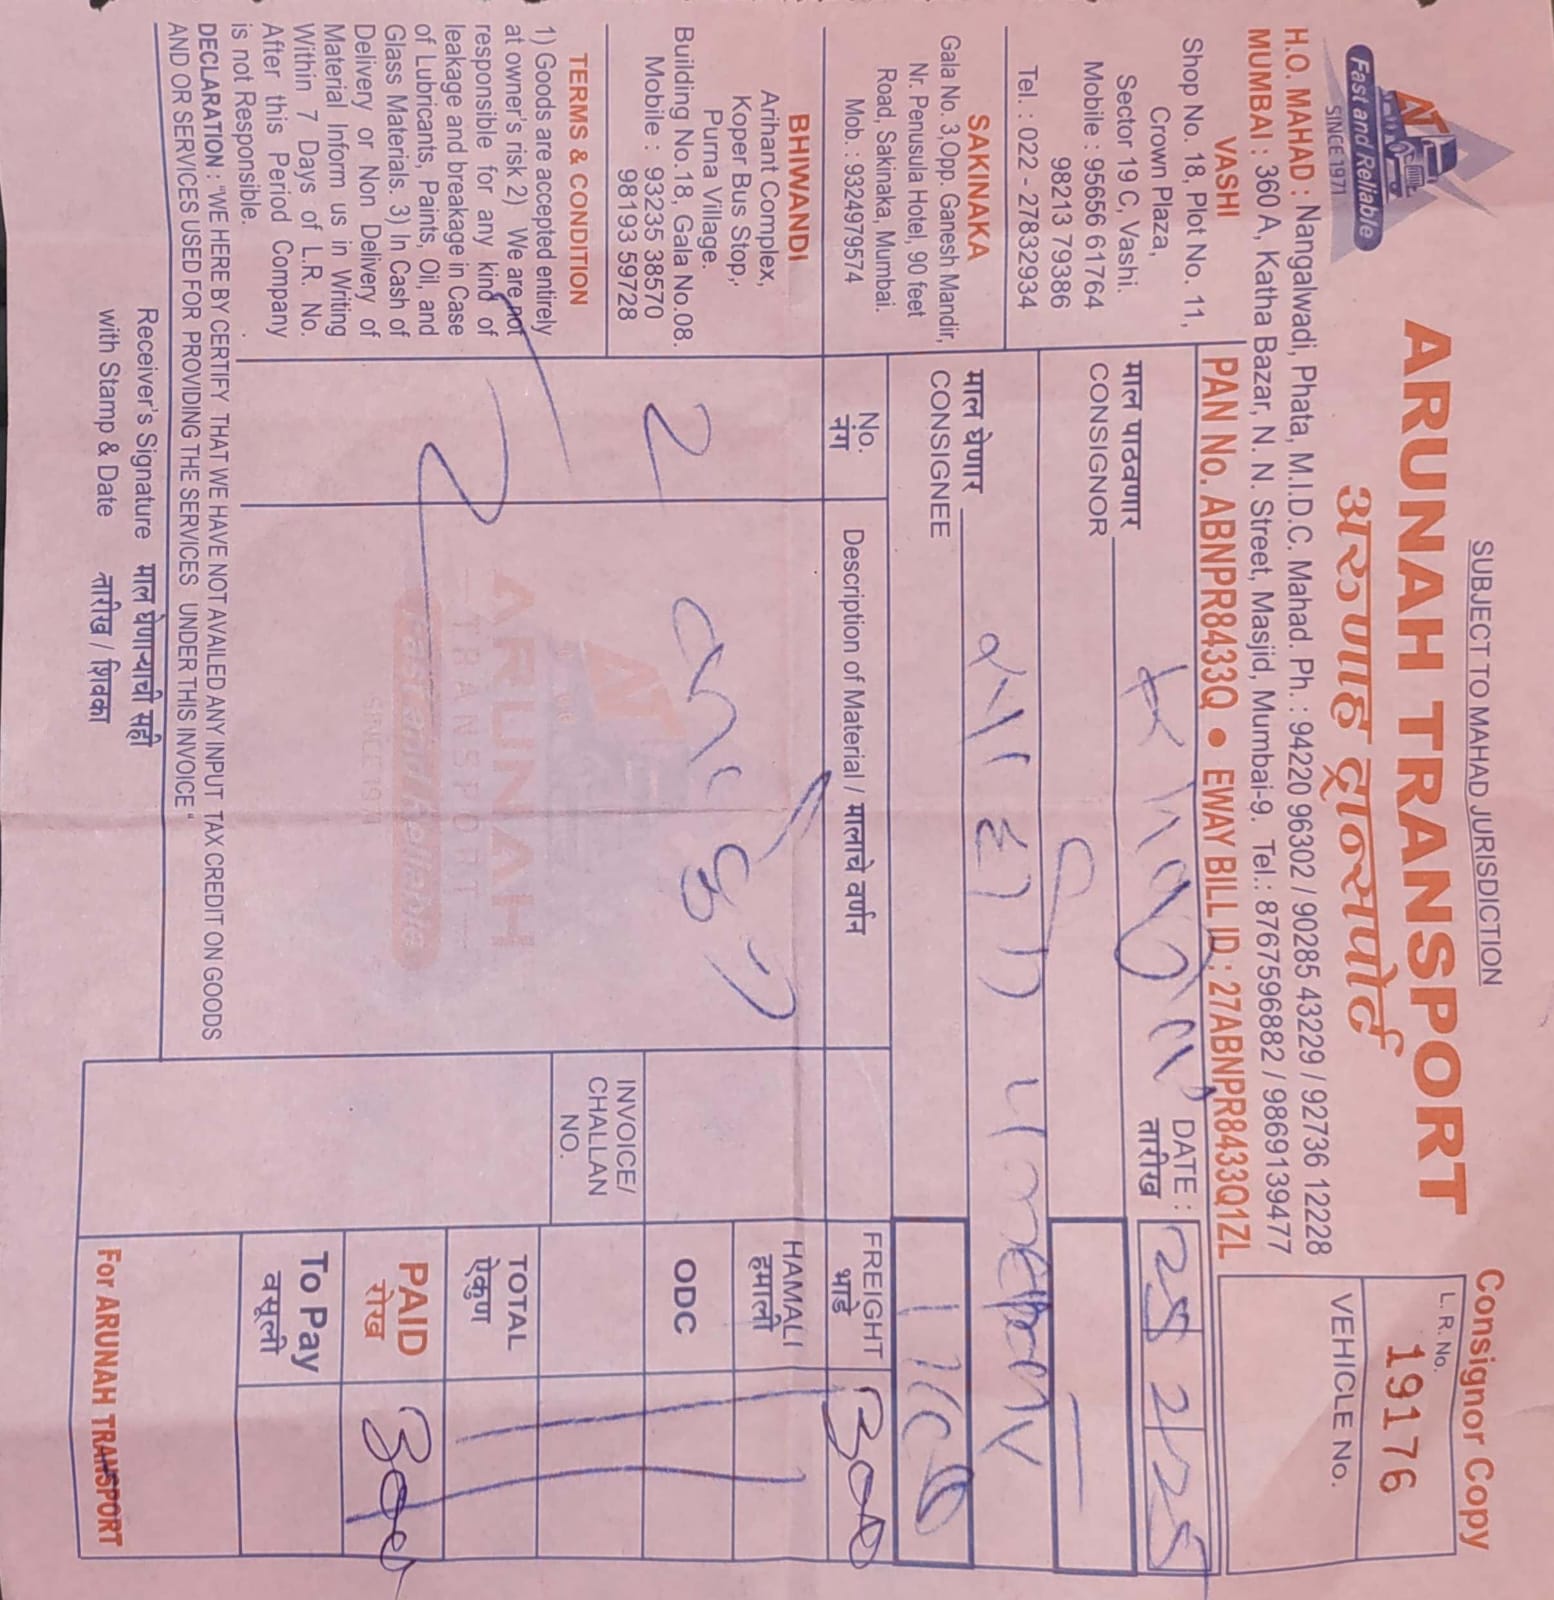 SUBJECT TO MAHAD JURISDICTION
Consignor Copy
ARUNAH TRANSPORT
अरुणाह ट्रान्सपोर्ट
Fast and Reliable
SINCE 1971
L. R. No.
19176
VEHICLE No.
H.O. MAHAD : Nangalwadi, Phata, M.I.D.C. Mahad. Ph. : 94220 96302 / 90285 43229 / 92736 12228
MUMBAI : 360 A, Katha Bazar, N. N. Street, Masjid, Mumbai-9. Tel.: 8767596882 / 9869139477
PAN No. ABNPR8433Q • EWAY BILL ID : 27ABNPR8433Q1ZL
VASHI
Shop No. 18, Plot No. 11,
Crown Plaza,
Sector 19 C, Vashi.
Mobile : 95656 61764
98213 79386
Tel. : 022 - 27832934
SAKINAKA
Gala No. 3,Opp. Ganesh Mandir,
Nr. Penusula Hotel, 90 feet
Road, Sakinaka, Mumbai.
Mob. : 9324979574
BHIWANDI
Arihant Complex,
Koper Bus Stop,
Purna Village.
Building No.18, Gala No.08.
Mobile : 93235 38570
98193 59728
TERMS & CONDITION
1) Goods are accepted entirely
at owner's risk 2) We are not
responsible for any kind of
leakage and breakage in Case
of Lubricants, Paints, Oil, and
Glass Materials. 3) In Cash of
Delivery or Non Delivery of
Material Inform us in Writing
Within 7 Days of L.R. No.
After this Period Company
is not Responsible.
माल पाठवणार
CONSIGNOR
DATE :
तारीख
25 2/25
माल घेणार
CONSIGNEE
No.
नंग
Description of Material / मालाचे वर्णन
2
FREIGHT
भाडे
300
HAMALI
हमाली
ODC
INVOICE/
CHALLAN
NO.
TOTAL
ऐकुण
PAID
रोख
300
To Pay
वसूली
ARUNAH
TRANSPORT
Fast and Reliable
SINCE 1971
DECLARATION : "WE HERE BY CERTIFY THAT WE HAVE NOT AVAILED ANY INPUT TAX CREDIT ON GOODS
AND OR SERVICES USED FOR PROVIDING THE SERVICES UNDER THIS INVOICE "
Receiver's Signature माल घेणाऱ्याची सही
with Stamp & Date तारीख / शिक्का
For ARUNAH TRANSPORT